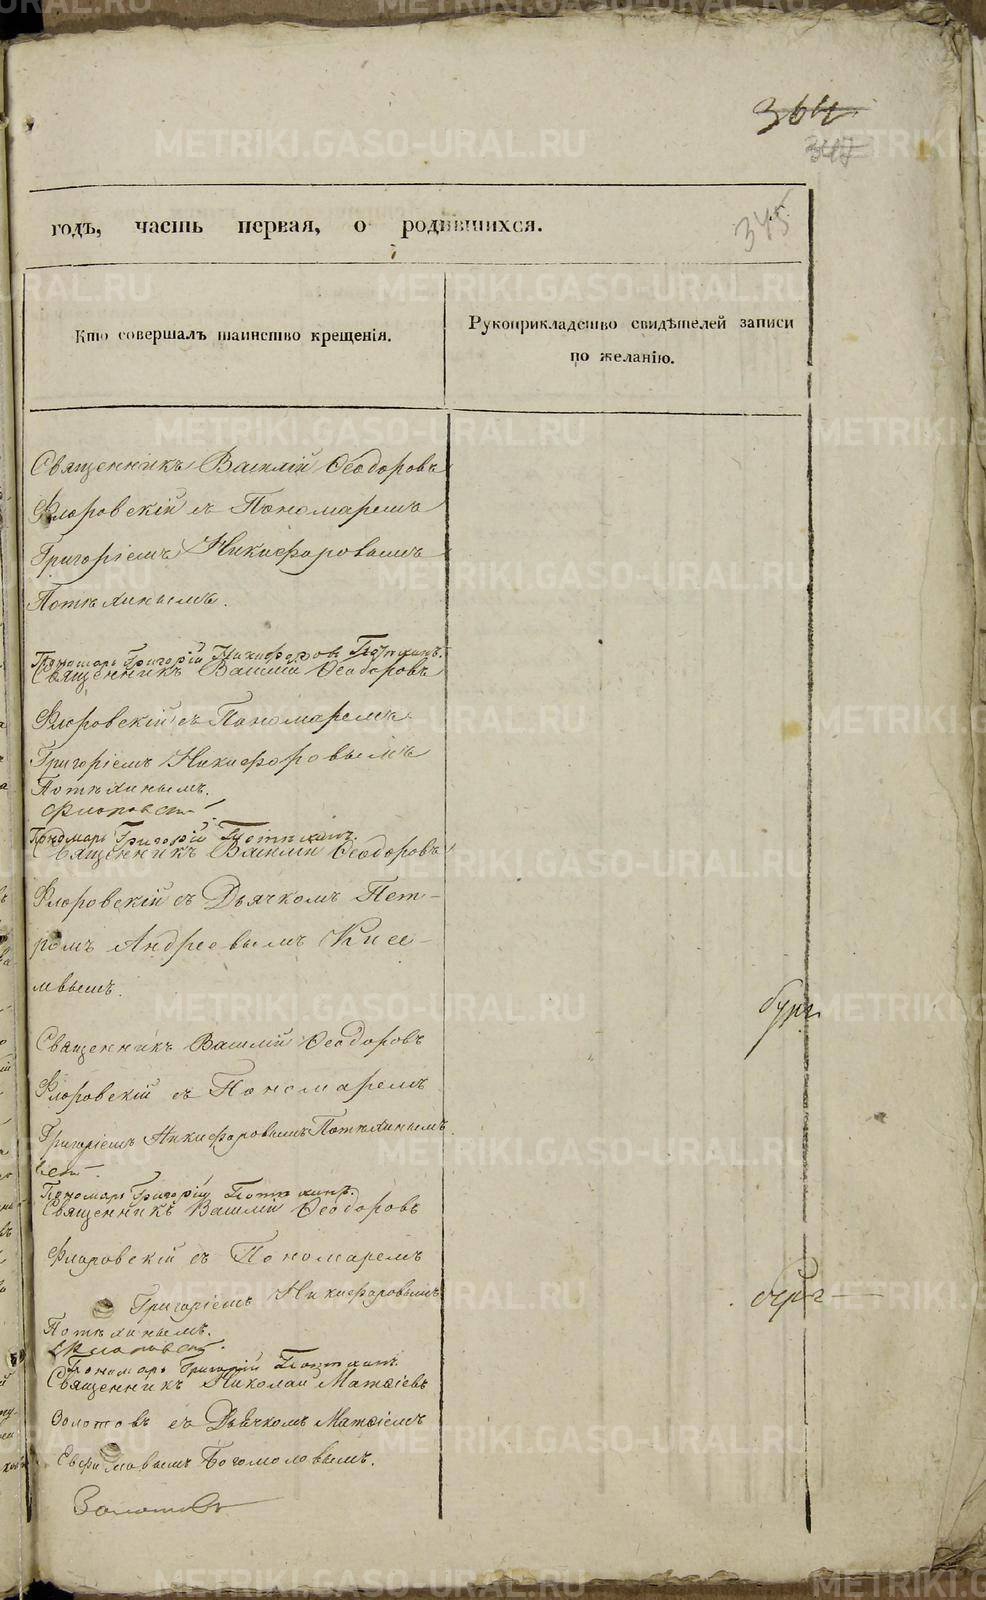 364
347
345
годъ, часть первая, о родившихся.
Кто совершалъ таинство крещенія.
Рукоприкладство свидѣтелей записи
по желанію.
Священникъ Василій Ѳеодоровъ
Флоровскій съ Пономаремъ
Григоріемъ Никифоровымъ
Потѣхинымъ.
Пономарь Григорій Никифоровъ Потѣхинъ.
Священникъ Василій Ѳеодоровъ
Флоровскій съ Пономаремъ
Григоріемъ Никифоровымъ
Потѣхинымъ.
Пономарь Григорій Потѣхинъ.
Священникъ Василій Ѳеодоровъ
Флоровскій съ Дьячкомъ Пет-
ромъ Андреевымъ Кисе-
левымъ.
Священникъ Василій Ѳеодоровъ
Флоровскій съ Пономаремъ
Григоріемъ Никифоровымъ Потѣхинымъ
Пономарь Григорій Потѣхинъ.
Священникъ Василій Ѳеодоровъ
Флоровскій съ Пономаремъ
Григоріемъ Никифоровымъ
Потѣхинымъ.
Пономарь Григорій Потѣхинъ
Священникъ Николай Матѳіевъ
Золотовъ съ Дьячкомъ Матѳіемъ
Ефимовымъ Богомоловымъ.
Золотовъ
METRIKI.GASO-URAL.RU